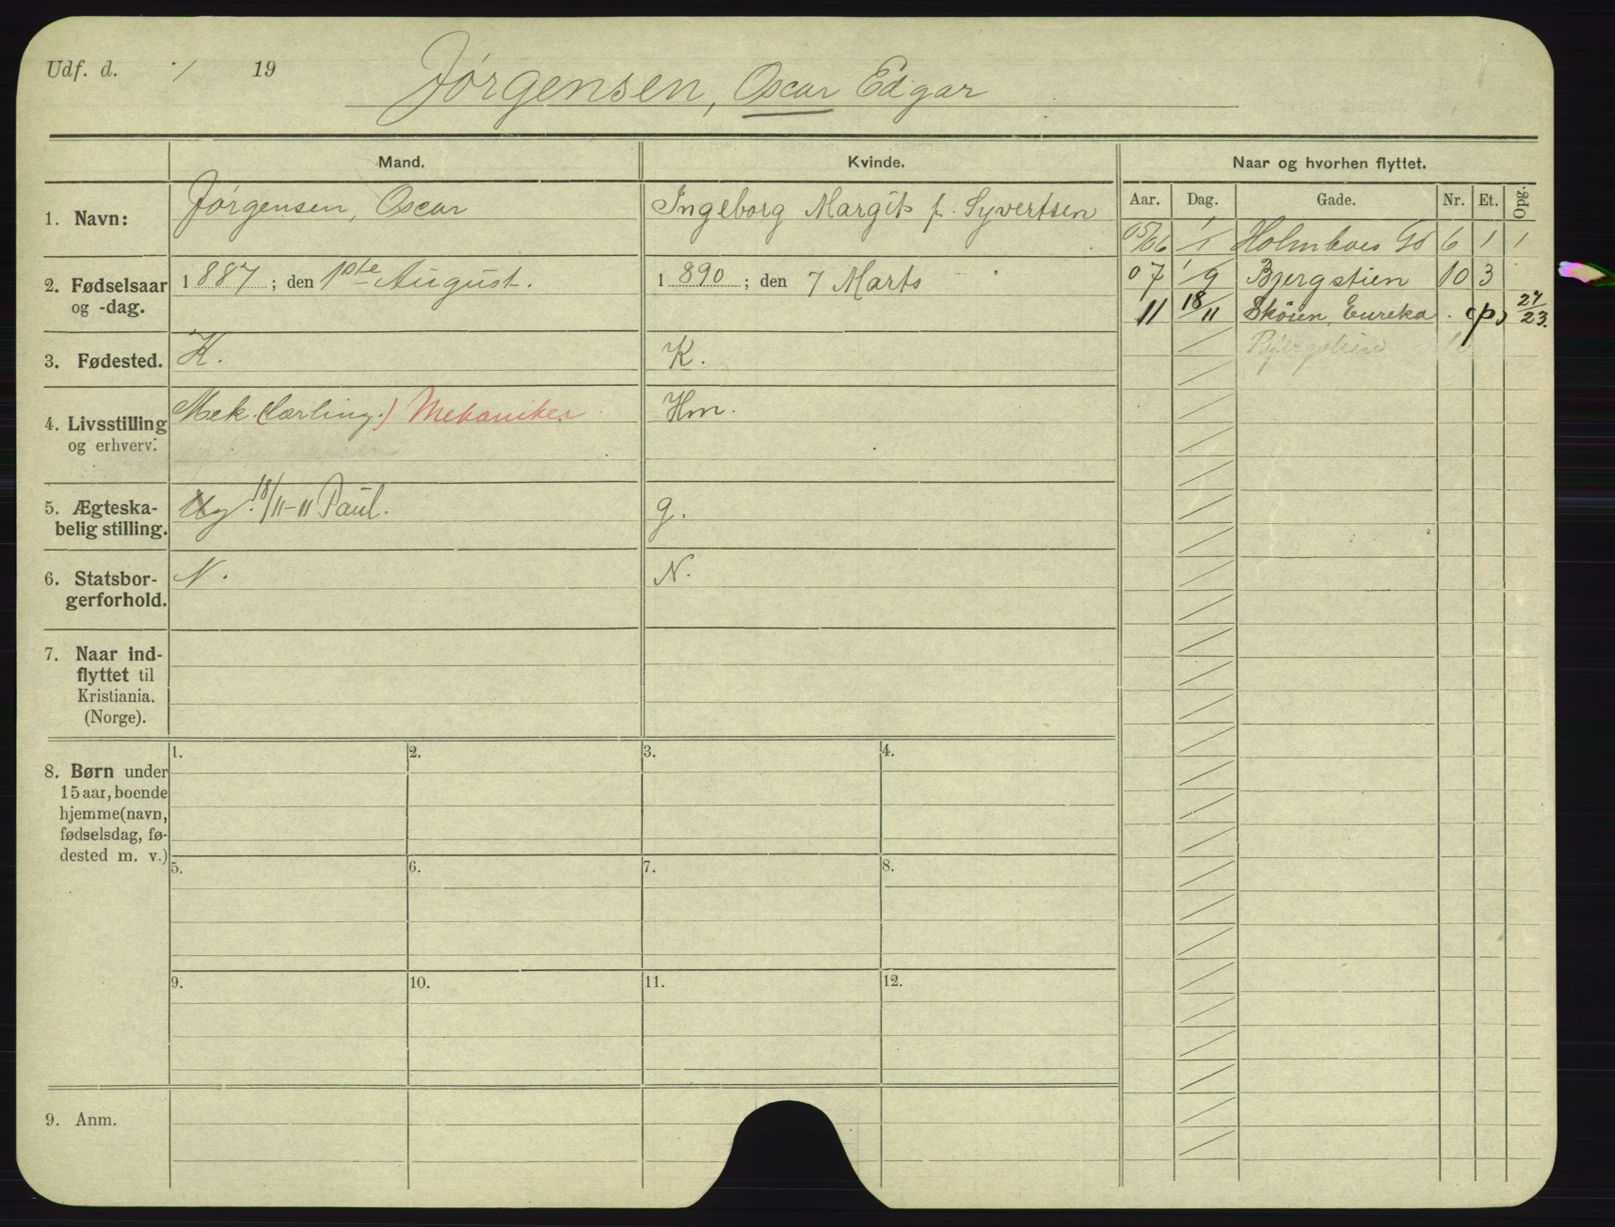 Udf. d. / 19
Jørgensen, Oscar Edgar
Mand.
Kvinde.
Naar og hvorhen flyttet.
Aar. Dag. Gade. Nr. Et. Opg.
1. Navn: Jørgensen, Oscar
Ingeborg Margit f. Syvertsen
05/06 1/1 Holmboes Gd 6 1 1
2. Fødselsaar og -dag.
1887; den 1ste August.
1890; den 7 Marts
07 1/9 Bjergstien 10 3
11 18/11 Skøien, Eureka . (p) 27/23.
Bjergstien
3. Fødested. K.
K.
4. Livsstilling og erhverv:
Mek. (Lærling.) Mekaniker.
Hm.
5. Ægteska-
belig stilling.
Ug. 18/11-11 Paul.
g.
6. Statsbor-
gerforhold.
N.
N.
7. Naar ind-
flyttet til
Kristiania.
(Norge).
8. Børn under
15 aar, boende
hjemme (navn,
fødselsdag, fø-
dested m. v.)
1. 2. 3. 4.
5. 6. 7. 8.
9. 10. 11. 12.
9. Anm.